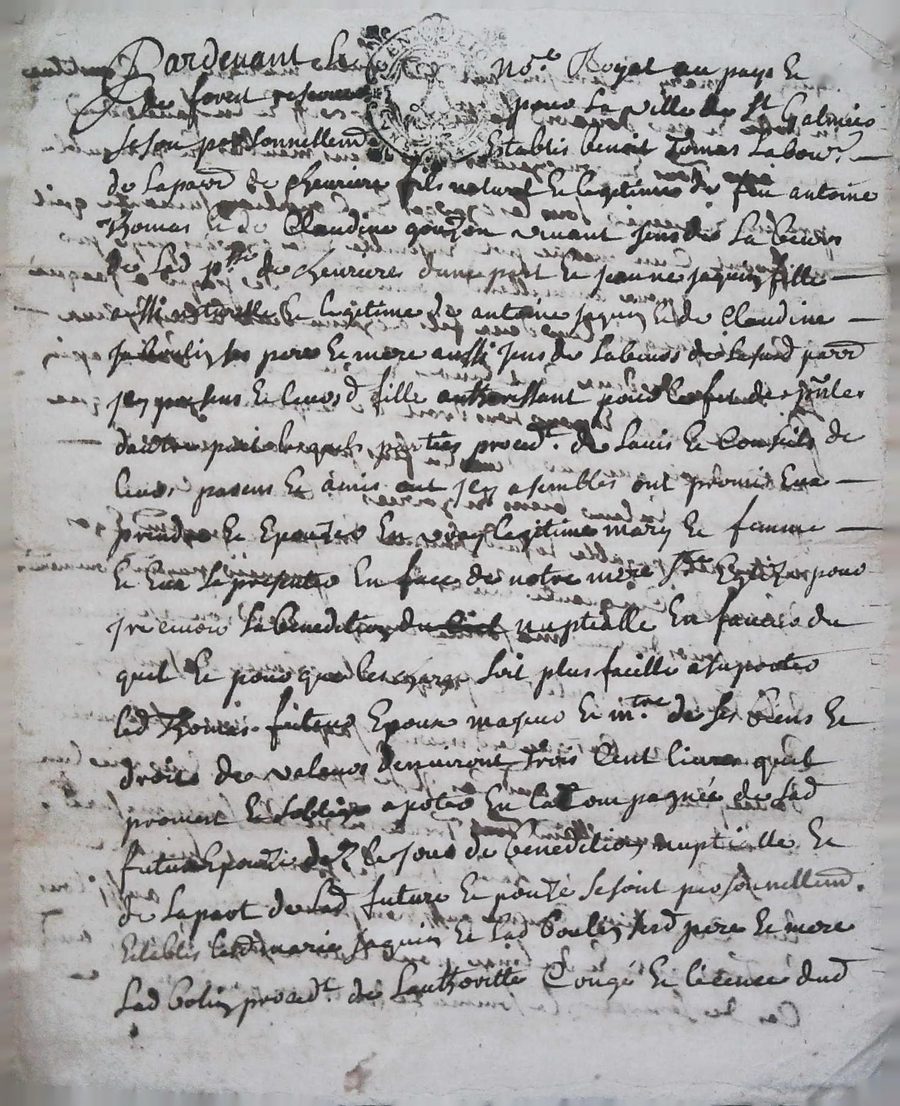 Pardevant le no.e Royal au pays de
de forest reservé pour la ville de St Galmier
se son personnellemt Establis benoit Tomas labour.r
de la parr de chevriere fils naturel Et legitime de feu antoine
Thomas Et de Claudine vivant jens de labeurs
de lad p.sse de chevrieres dune part Et jeanne jaquin fille
aussi naturelle Et legitime de antoine jaquin Et de Claudine
ses pere Et mere aussi jens de labeurs de la parr
jcy presens Et leurd fille authorissant pour lefet des pntes
dautre part lesquels parties proced.t de lavis Et Conseils de
leurs parens Et amis jcy asembles ont promis Eux
prendre Et Epouzer En vray legitime mary Et femme
Et Eux se presenter En face de notre mere Ste Eglize pour
jre la benediction nuptialle En faveur du
quel Et pour que les charges soit plus facille a suporter
led Thomas futeur Epoux majeur Et m.tre de ses biens Et
droits de valeurs denviront trois Cent livres quil
promest Et soblige aporter En la Compagnée de lad
future Epouze le jour de benediction nuptialle Et
de la part de lad future Epouze se sont personnellemd.
Establis jaquin Et lad boulin sesd pere Et mere
lad bolin proced.t de lauthoritte Congé Et licence dud